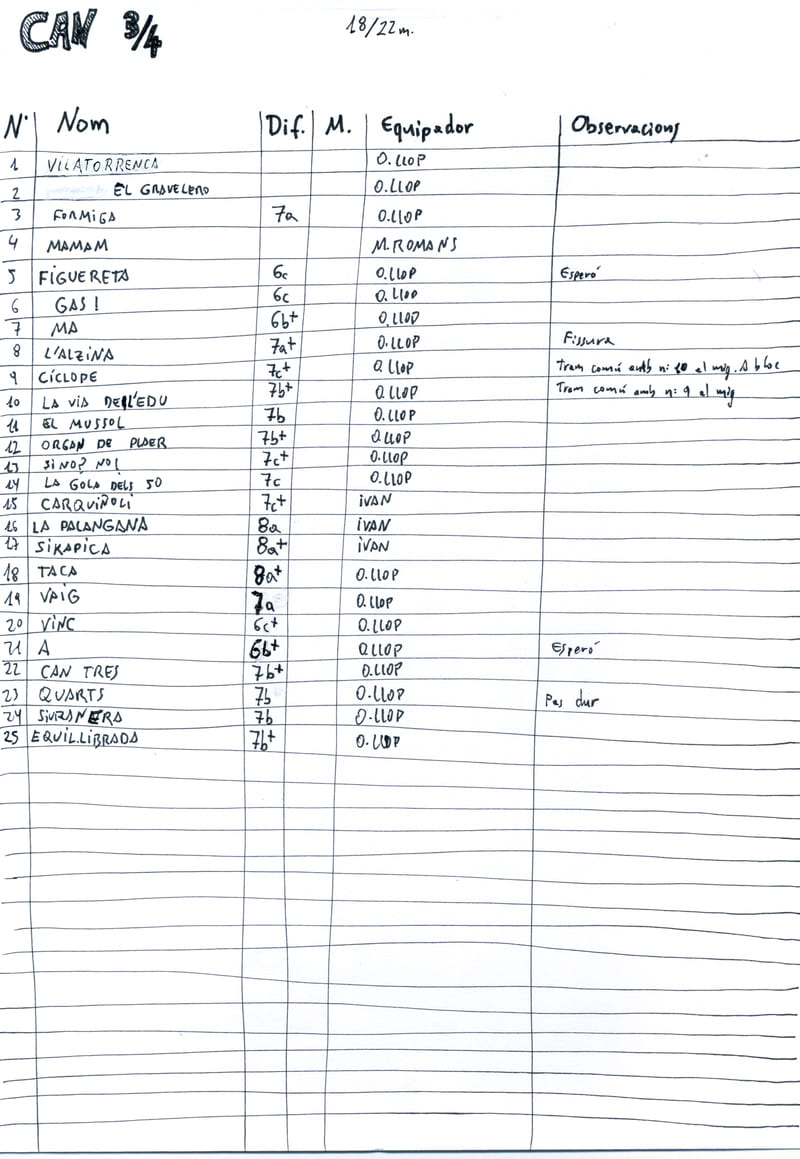 CAN 3/4
18/22 m.
Nº Nom Dif. M. Equipador Observacions
1 VILATORRENCA O. LLOP
2 EL GRAVELERO O. LLOP
3 FORMIGA 7a O. LLOP
4 MAMAM M. ROMANS
5 FIGUERETA 6c O. LLOP Esperó
6 GAS! 6c O. LLOP
7 MA 6b+ O. LLOP
8 L'ALZINA 7a+ O. LLOP Fissura
9 CÍCLOPE 7c+ O. LLOP Tram comú amb n: 10 al mig. A bloc
10 LA VIA DE L'EDU 7b+ O. LLOP Tram comú amb n: 9 al mig
11 EL MUSSOL 7b O. LLOP
12 ORGAN DE PLAER 7b+ O. LLOP
13 SI NO? NO! 7c+ O. LLOP
14 LA GOLA DELS 50 7c O. LLOP
15 CARQUIÑOLI 7c+ IVAN
16 LA PALANGANA 8a IVAN
17 SIKAPICA 8a+ IVAN
18 TACA 8a+ O. LLOP
19 VAIG 7a O. LLOP
20 VINC 6c+ O. LLOP
21 A 6b+ O. LLOP Esperó
22 CAN TRES 7b+ O. LLOP
23 QUARTS 7b O. LLOP Pas dur
24 SIURANERA 7b O. LLOP
25 EQUIL.LIBRADA 7b+ O. LLOP